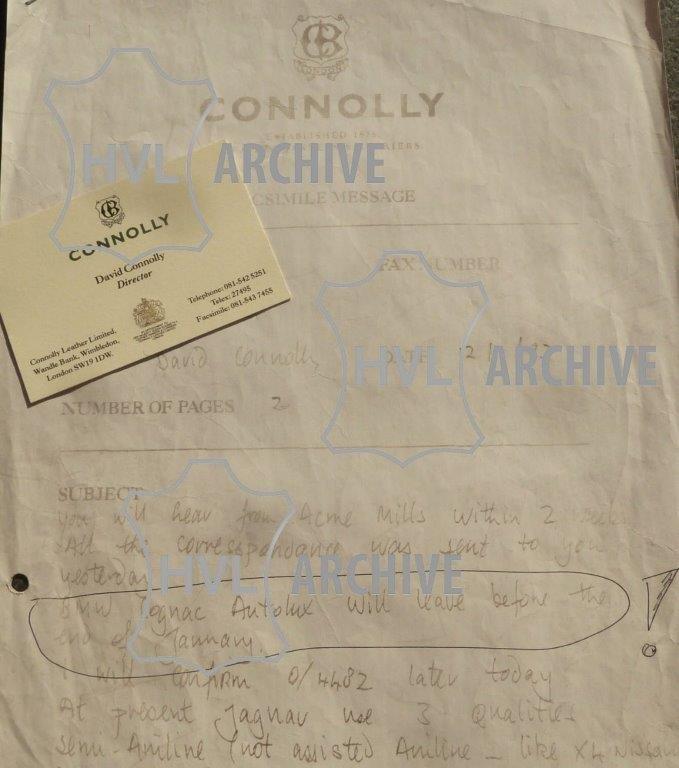 CB
LONDON
CONNOLLY
ESTABLISHED 1878
FACSIMILE MESSAGE
FAX NUMBER
David Connolly
DATE
NUMBER OF PAGES 2
SUBJECT
You will hear from Acme Mills within 2 weeks
All the correspondance was sent to you
yesterday
BMW Cognac Autolux will leave before the
end of January.
I will confirm 0/4482 later today
At present Jaguar use 3 Qualities
Semi-Aniline (not assisted Aniline - like X4 Nissan
CB
CONNOLLY
David Connolly
Director
Telephone: 081-542 5251
Telex: 27495
Facsimile: 081-543 7455
Connolly Leather Limited,
Wandle Bank, Wimbledon,
London SW19 1DW.
HVL ARCHIVE
HVL ARCHIVE
HVL ARCHIVE